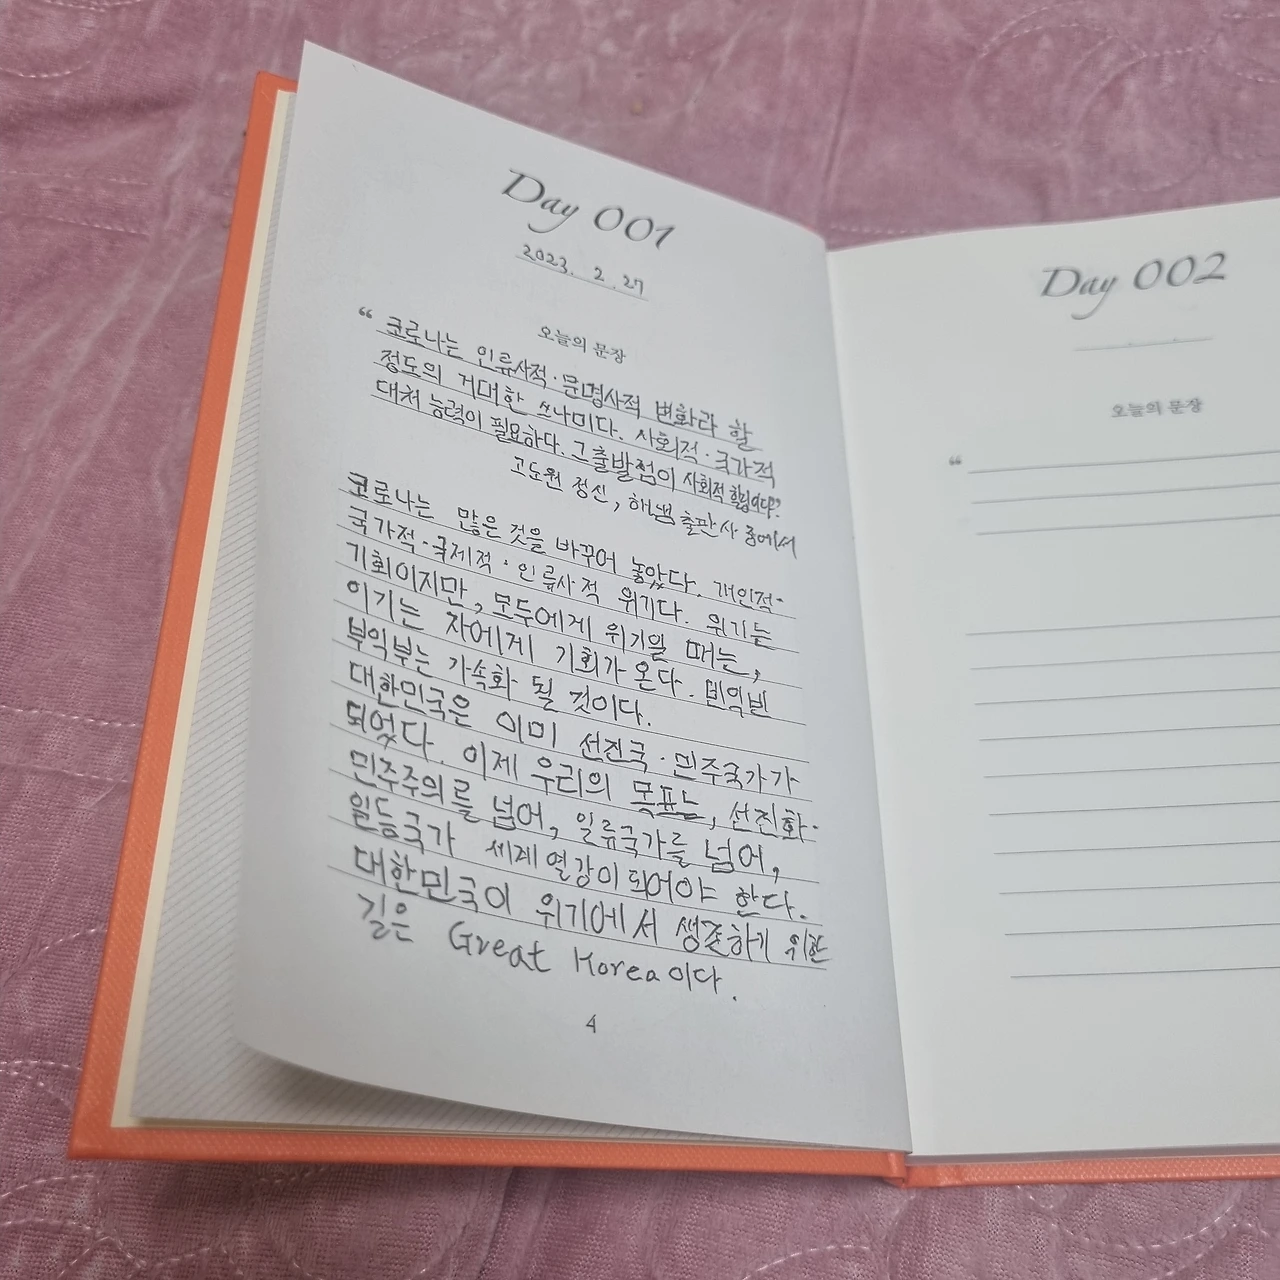 Day 001
2023. 2. 27
오늘의 문장
“ 코로나는 인류사적·문명사적 변화라 할
정도의 거대한 쓰나미다. 사회적·국가적
대처 능력이 필요하다. 그 출발점이 사회적
고도원 정신, 해냄출판사 중에서
코로나는 많은 것을 바꾸어 놓았다. 개인적·
국가적·국제적·인류사적 위기다. 위기는
기회이지만, 모두에게 위기일 때는,
이기는 자에게 기회가 온다. 빈익빈
부익부는 가속화 될 것이다.
대한민국은 이미 선진국·민주국가가
되었다. 이제 우리의 목표는, 선진화·
민주주의를 넘어, 일류국가를 넘어,
일등국가 세계열강이 되어야 한다.
대한민국이 위기에서 생존하기 위한
길은 Great Korea이다.
4
Day 002
. .
오늘의 문장
“